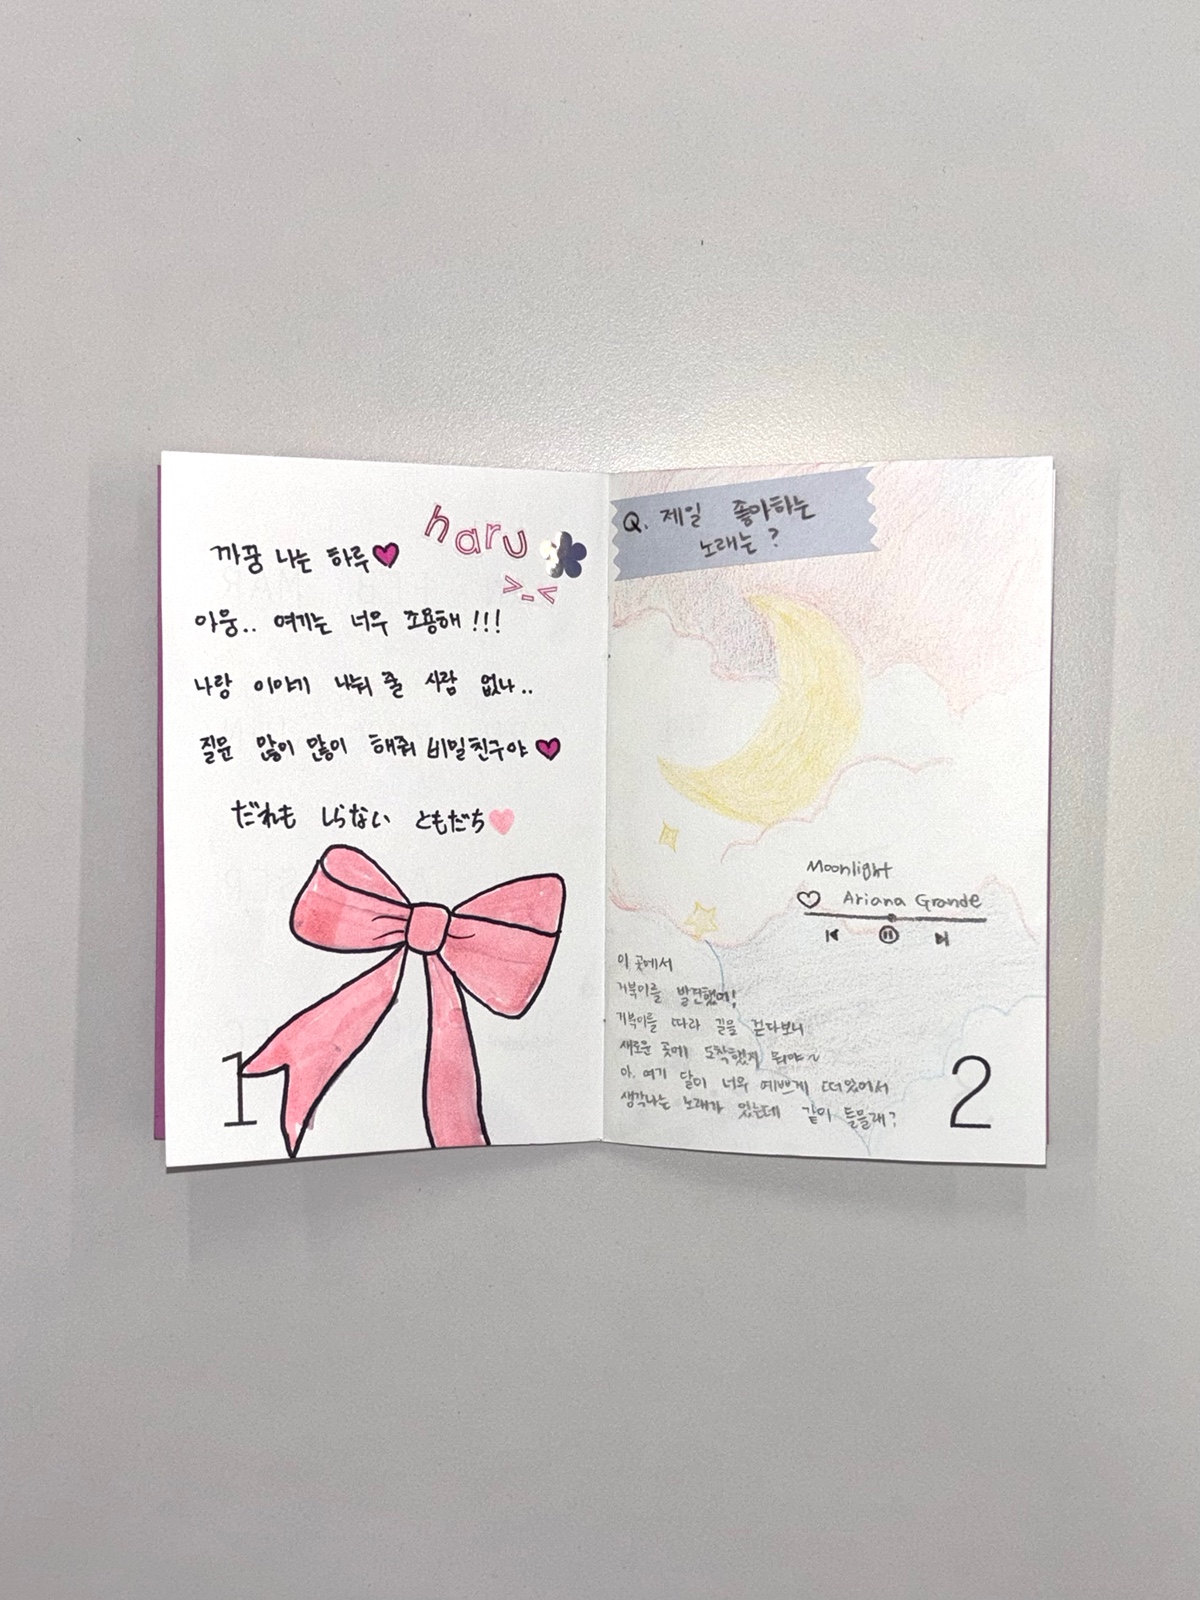 haru
>_<
까꿍 나는 하루
아웅.. 여기는 너무 조용해!!!
나랑 이야기 나눠 줄 사람 없나..
질문 많이 많이 해줘 비밀친구야
だれも しらない ともだち
1
Q. 제일 좋아하는
노래는?
Moonlight
Ariana Grande
이 곳에서
거북이를 발견했어!
거북이를 따라 길을 걷다보니
새로운 곳에 도착했지 뭐야~
아, 여기 달이 너무 예쁘게 떠있어서
생각나는 노래가 있는데 같이 들을래?
2